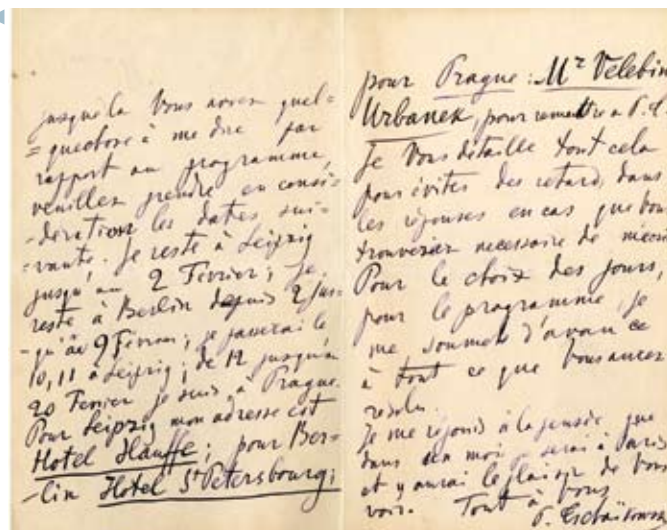 jusque la Vous aurez quel=
=quechose à me dire par
rapport au programme,
veuillez prendre en consi=
-deration les dates sui=
=vante. Je reste à Leipzig
jusqu'au 2 Fevrier; je
reste à Berlin depuis 2 jus=
-qu'au 9 Fevrier; je passerai le
10, 11 à Leipzig; de 12 jusqu'à
20 Fevrier je suis à Prague.
Pour Leipzig mon adresse est
Hotel Hauffe; pour Ber=
-lin Hotel St Petersbourg;
pour Prague: Mr Velebin
Urbanek, pour remettre a P. T.
Je Vous détaille tout cela
pour éviter des retards dans
les réponses en cas que Vous
trouveriez necessaire de
Pour le choix des jours,
pour le programme je
me soumets d'avance
à tout ce que Vous aurez
résolu.
Je me rejouis à la pensée que
dans un mois je serai à Paris
et y aurai le plaisir de Vous
voir. Tout à Vous
P. Tschaïkowsky